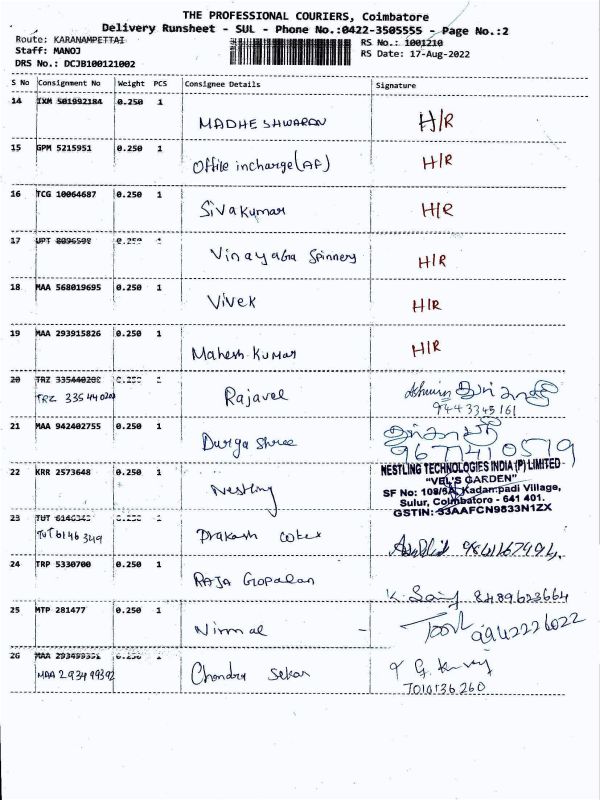 THE PROFESSIONAL COURIERS, Coimbatore
Delivery Runsheet - SUL - Phone No.:0422-3505555 - Page No.:2
Route: KARANAMPETTAI
RS No.: 1001210
Staff: MANOJ
RS Date: 17-Aug-2022
DRS No.: DCJB100121002
S No Consignment No Weight PCS Consignee Details Signature
14 IXM 501992184 0.250 1 MADHESHWARAN H/R
15 GPM 5215951 0.250 1 Office incharge (AF) H/R
16 TCG 10064687 0.250 1 Sivakumar H/R
17 UPT 0.250 Vinayaga Spinners H/R
18 MAA 568019695 0.250 1 Vivek H/R
19 MAA 293915826 0.250 1 Mahesh Kumar H/R
20 TRZ 335440208 0.250 Rajavel
TRZ 335440208 9443345161
21 MAA 942402755 0.250 1 Durga Shree
9677410579
22 KRR 2573648 0.250 1 Nestling
NESTLING TECHNOLOGIES INDIA (P) LIMITED
"VEL'S GARDEN"
SF No: 108/5A, Kadampadi Village,
Sulur, Coimbatore - 641 401.
GSTIN: 33AAFCN9833N1ZX
23 TUT 0.250 Prakash
TUT 6146349
24 TRP 5330700 0.250 1 RAJA Gopalan
8489623664
25 MTP 281477 0.250 1 Nirmal - 9942226022
26 MAA 0.250 1 Chandra Sekar
MAA 293499392